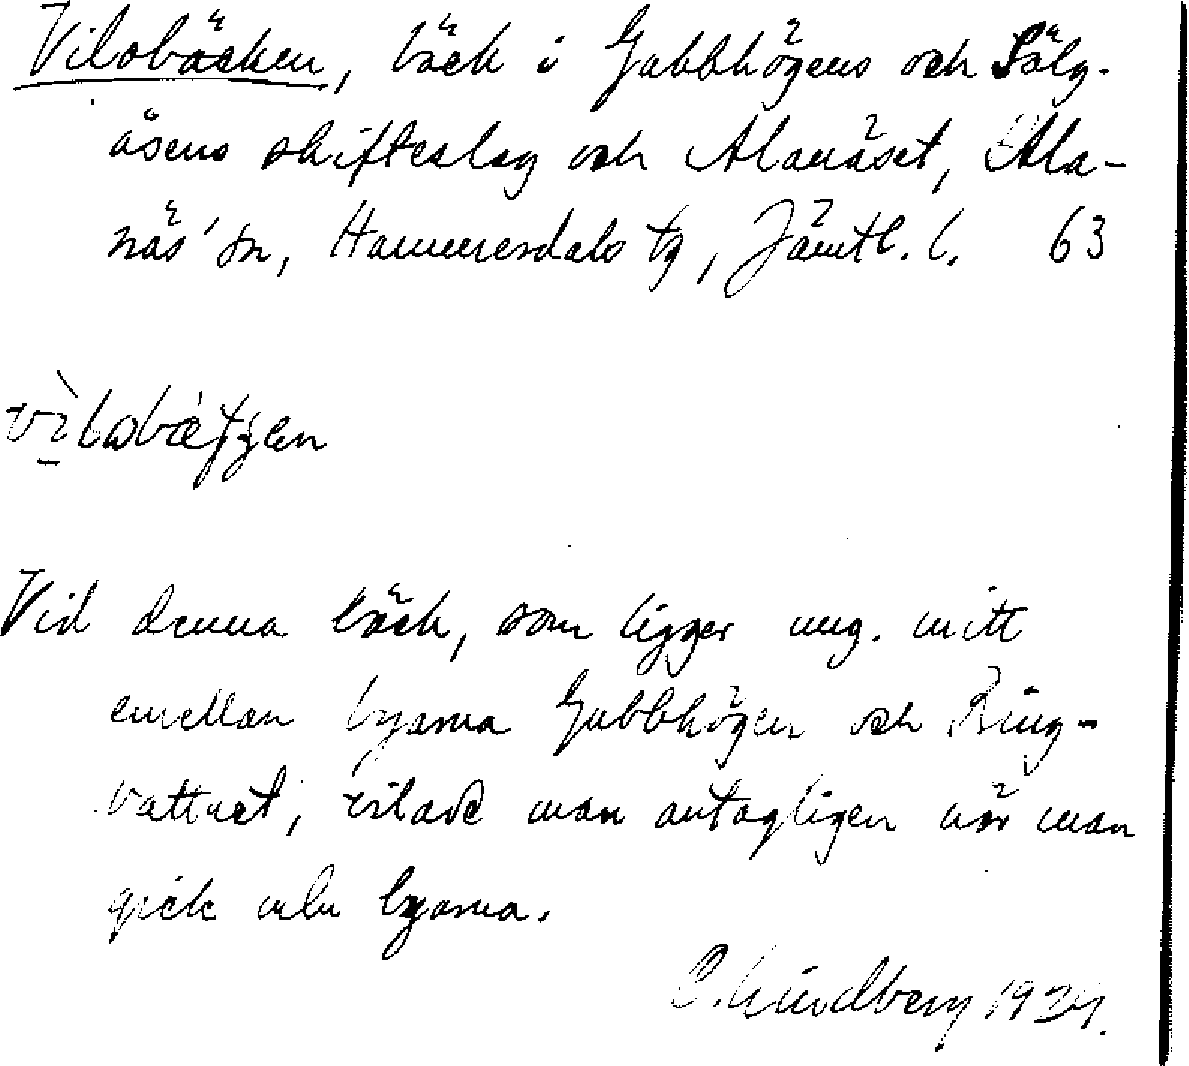 Vilobäcken, bäck i Gubbhögens och Sälg-
åsens skifteslag och Alanäset, Ala-
näs' sn, Hammerdals tg, Jämtl. l. 63
Vid denna bäck, som ligger ung. mitt
emellan byarna Gubbhögen och Ring-
vattnet, vilade man antagligen när man
gick mln byarna.
C. Lindberg 1934.